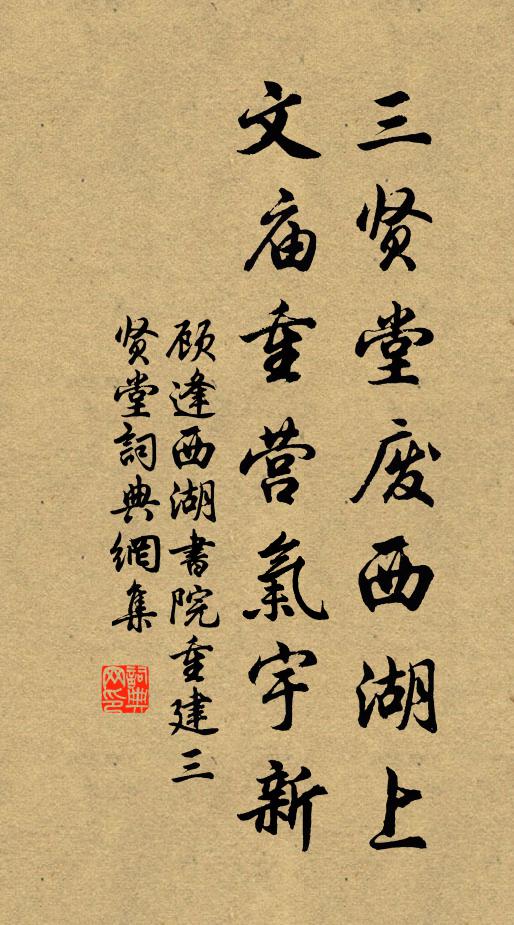 三贤堂废西湖上
文庙重营氣宇新
顾逢西湖書院重建三
贤堂詞典網集
詞典
网印